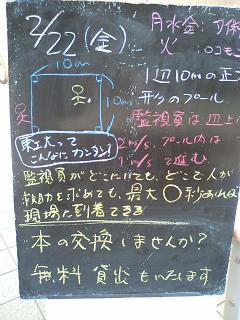 2/22(金)
月水金
火 ロコモ
10m
10m
1辺10mの正
形のプール
監視員は辺上
2m/s プール内は
1m/sで進む
東工大って
こんなにカンタン!
監視員がどこにいても、どこで人が
救助を求めても、最大○秒あれば
現場に到着できる
本の交換しませんか?
無料貸出もいたします